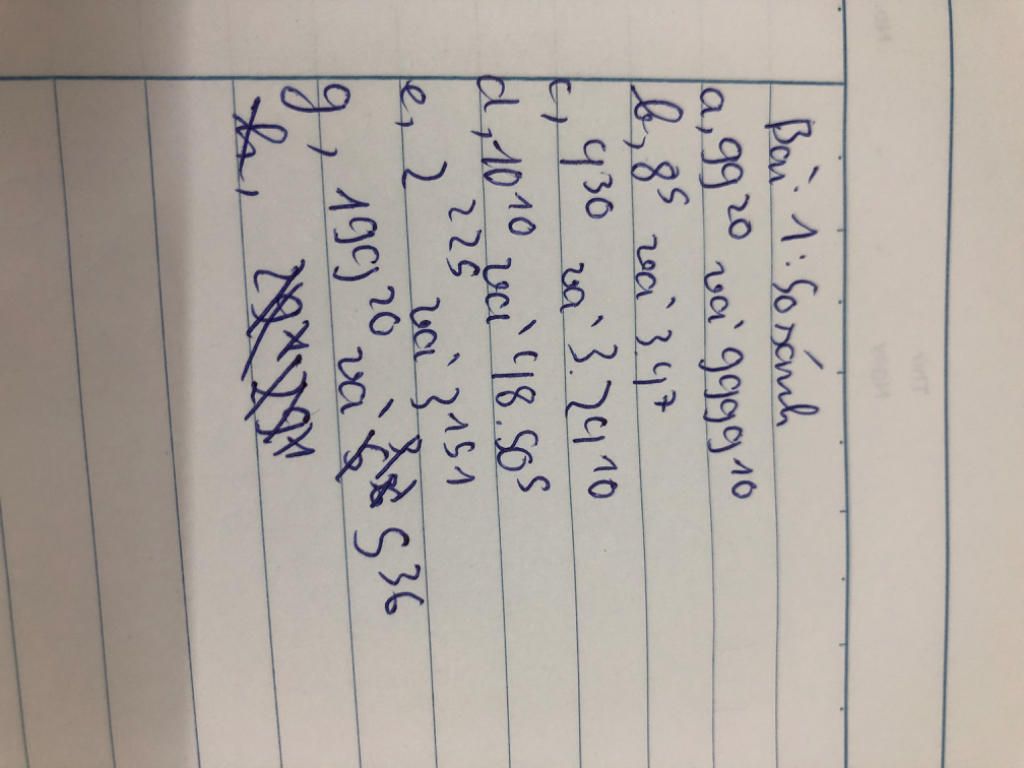 Bài 1: So sánh
a, 99²⁰ và 9999¹⁰
b, 8⁵ và 3.4⁷
c, 4³⁰ và 3.24¹⁰
d, 10¹⁰ và 48.50⁵
e, 2²²⁵ và 3¹⁵¹
g, 199²⁰ và 5³⁶
h,